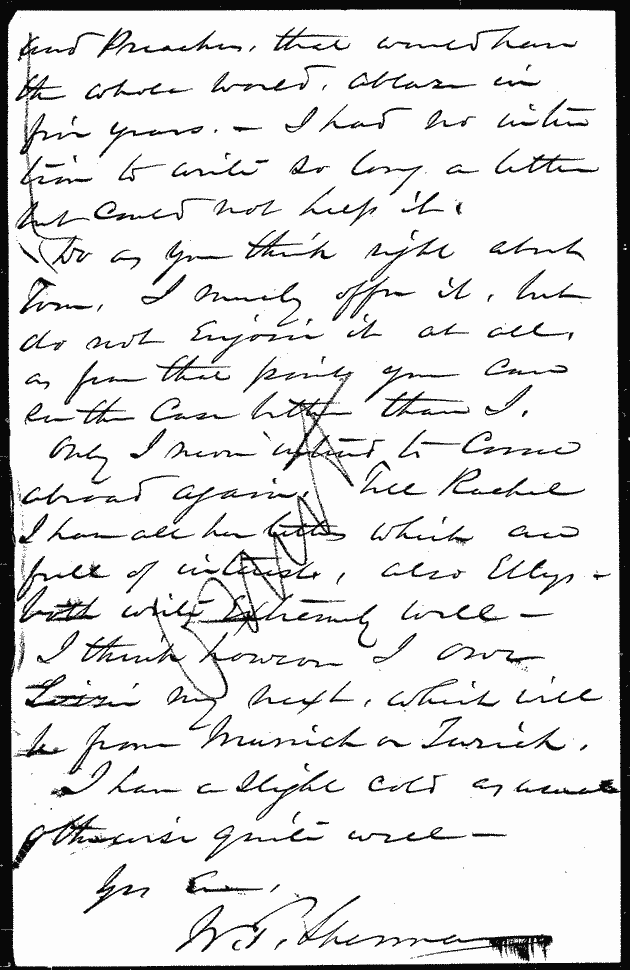 and Preacher, that would have
the whole world, ablaze in
five years. — I had no inten
tion to write so long a letter
but could not help it.
Do as you think right about
Tom, I merely offer it, but
do not enjoin it at all,
as from that point you can
see the case better than I.
Only I never intend to come
abroad again. Tell Rachel
I have all her letters which are
full of interest, also Ellys -
both write Extremely well —
I think however I owe
Lizzie my next, which will
be from Munich or Zurich.
I have a slight cold as usual
otherwise quite well —
Yrs Ever,
W. T. Sherman